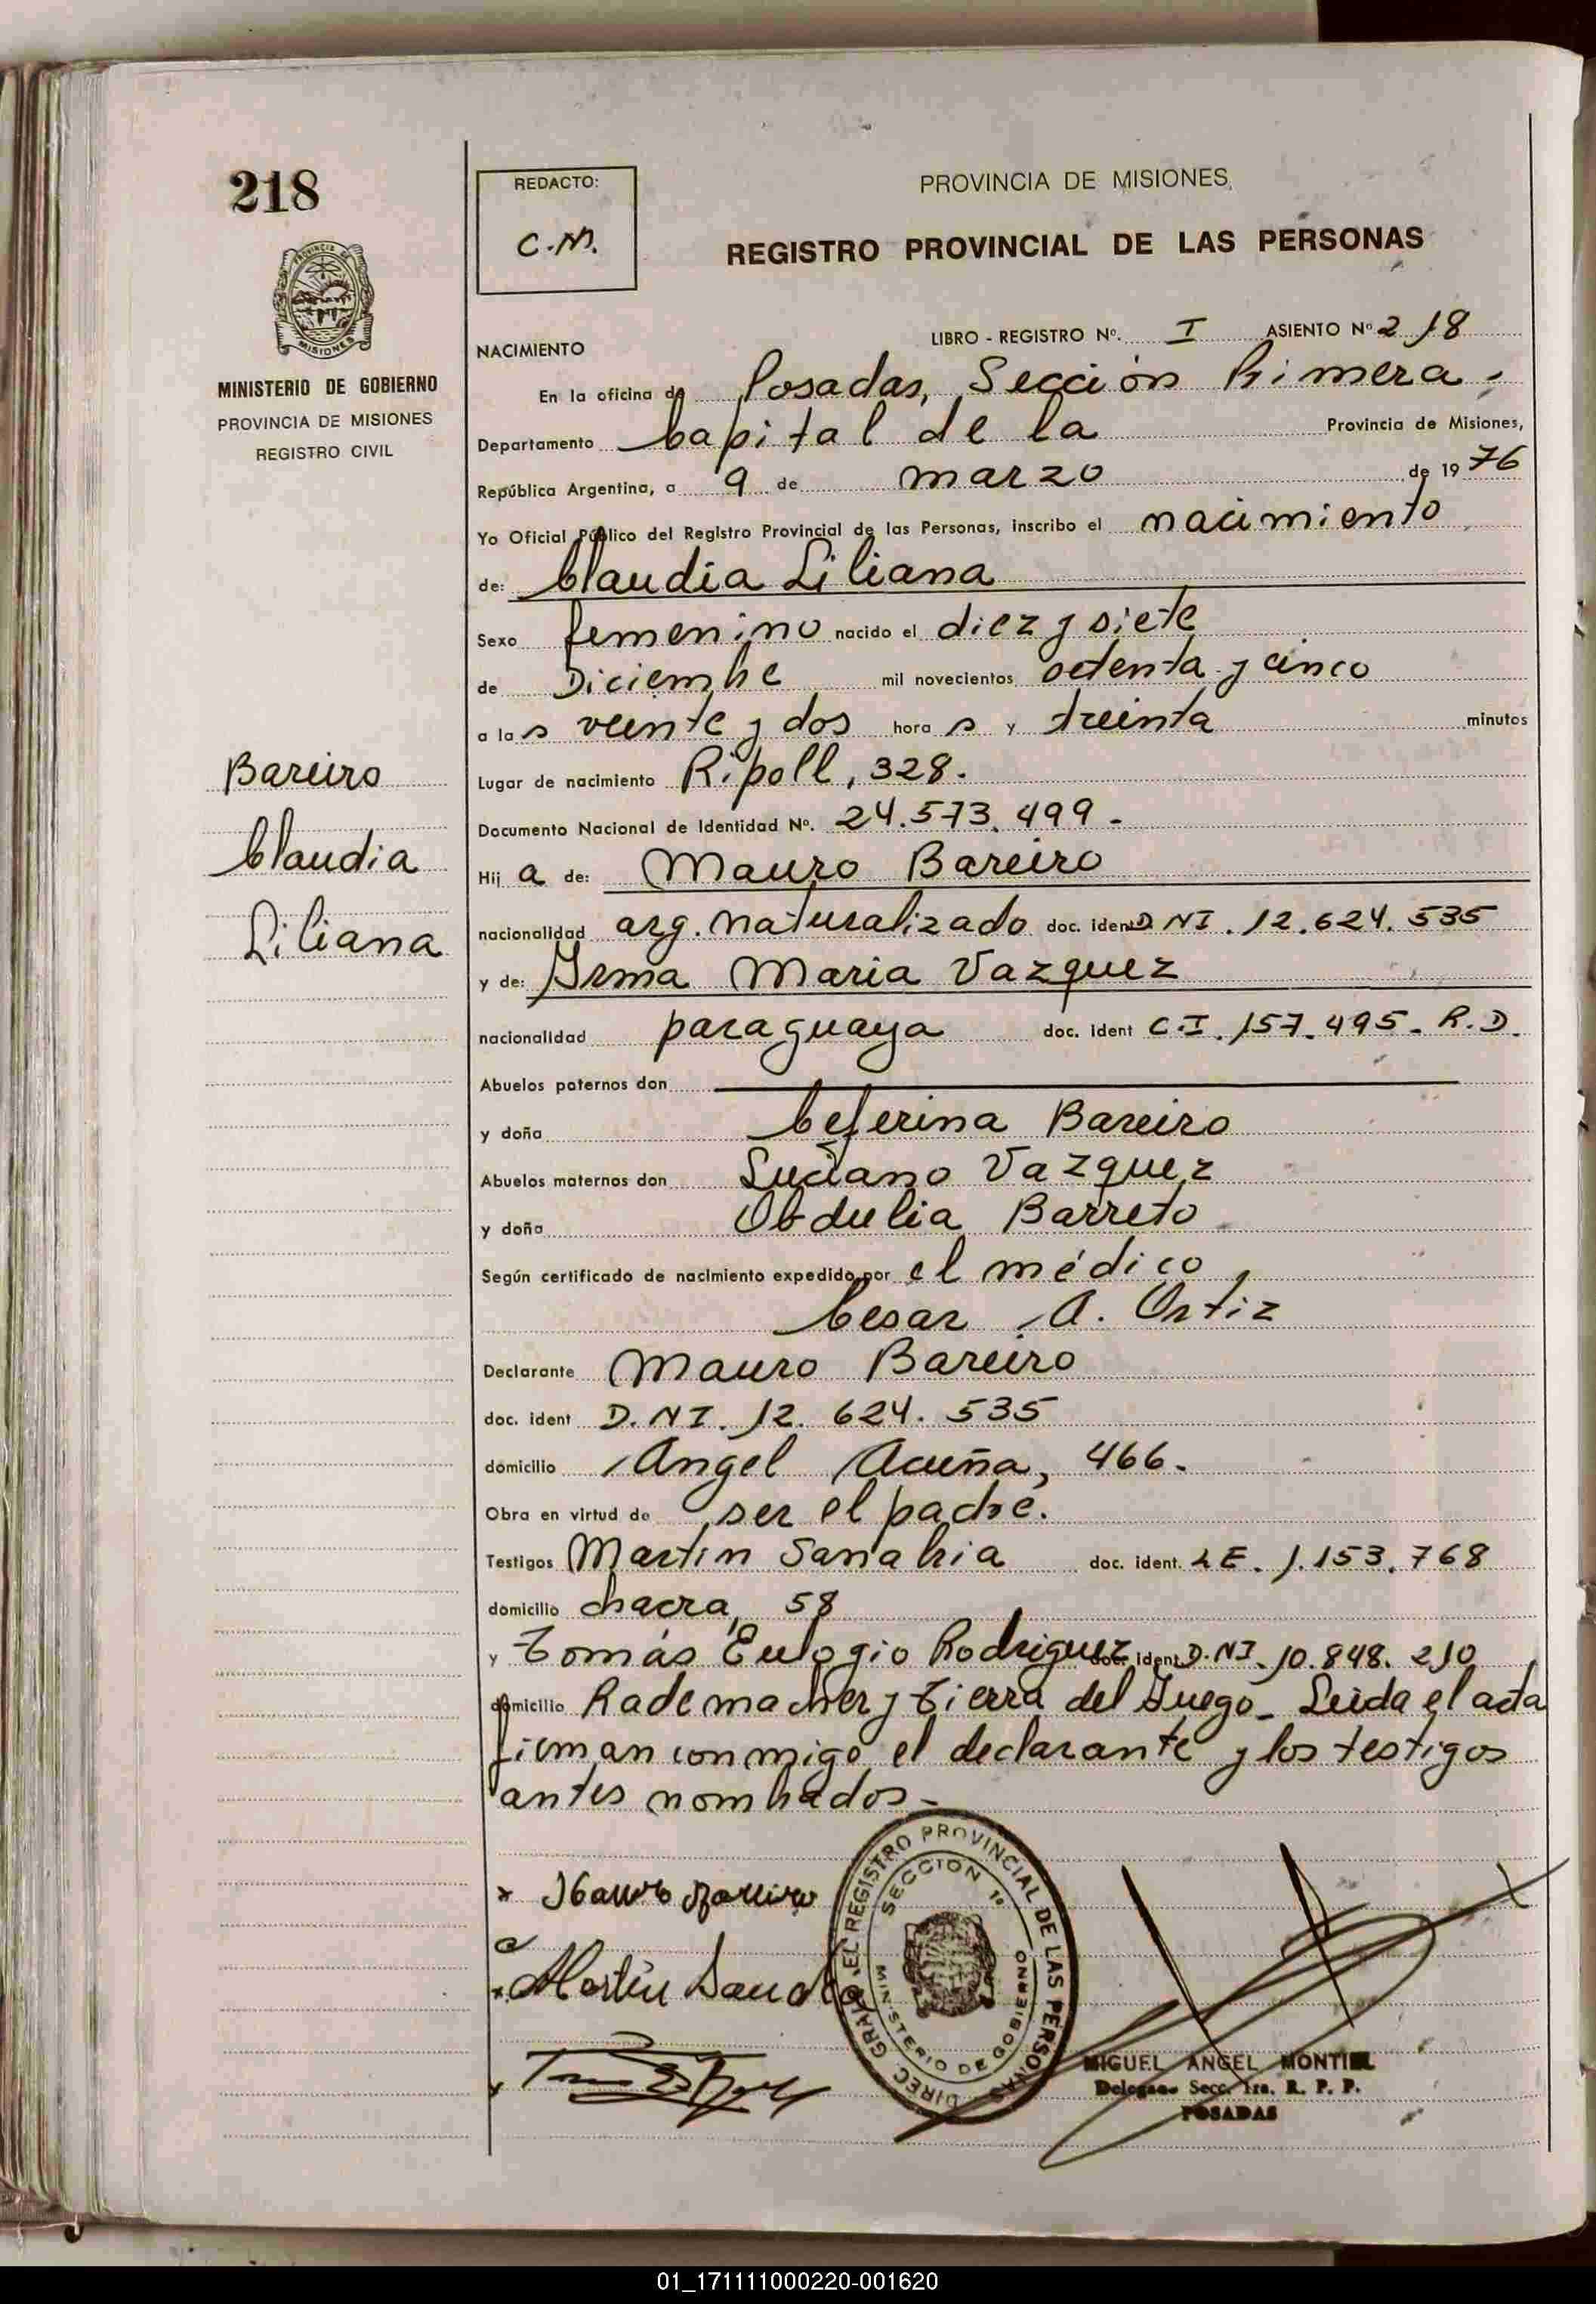 218
REDACTO:
C.M.
PROVINCIA DE MISIONES
REGISTRO PROVINCIAL DE LAS PERSONAS
PROVINCIA DE
MISIONES
MINISTERIO DE GOBIERNO
PROVINCIA DE MISIONES
REGISTRO CIVIL
NACIMIENTO LIBRO - REGISTRO Nº. I ASIENTO Nº 218
En la oficina de Posadas, Sección Primera.
Departamento Capital de la Provincia de Misiones,
República Argentina, a 9 de marzo de 1976
Yo Oficial Público del Registro Provincial de las Personas, inscribo el nacimiento
de: Claudia Liliana
Sexo femenino nacido el diez y siete
de Diciembre mil novecientos setenta y cinco
a las veinte y dos horas y treinta minutos
Lugar de nacimiento Ripoll, 328.
Documento Nacional de Identidad Nº. 24.573.499-
Hija de: Mauro Bareiro
nacionalidad arg. naturalizado doc. ident D.NI. 12.624.535
y de: Irma Maria Vazquez
nacionalidad paraguaya doc. ident C.I. 157.495. R.D.
Abuelos paternos don
y doña Ceferina Bareiro
Abuelos maternos don Luciano Vazquez
y doña Obdulia Barreto
Según certificado de nacimiento expedido por el médico
Cesar A. Ortiz
Declarante Mauro Bareiro
doc. ident D.NI. 12.624.535
domicilio Angel Acuña, 466.
Obra en virtud de ser el padre.
Testigos Martin Sanabria doc. ident. LE. 1.153.768
domicilio chacra, 58
y Tomás Eulogio Rodriguez doc. ident D.NI. 10.848.210
domicilio Rademacher y Tierra del Fuego_ Leida el acta
firman conmigo el declarante y los testigos
antes nombrados-
Bareiro
Claudia
Liliana
Mauro Bareiro
Martin
DIREC. GRAL. EL REGISTRO PROVINCIAL DE LAS PERSONAS
SECCION 1ª
MINISTERIO DE GOBIERNO
MIGUEL ANGEL MONTIEL
Delegado Secc. 1ra. R. P. P.
POSADAS
01_171111000220-001620